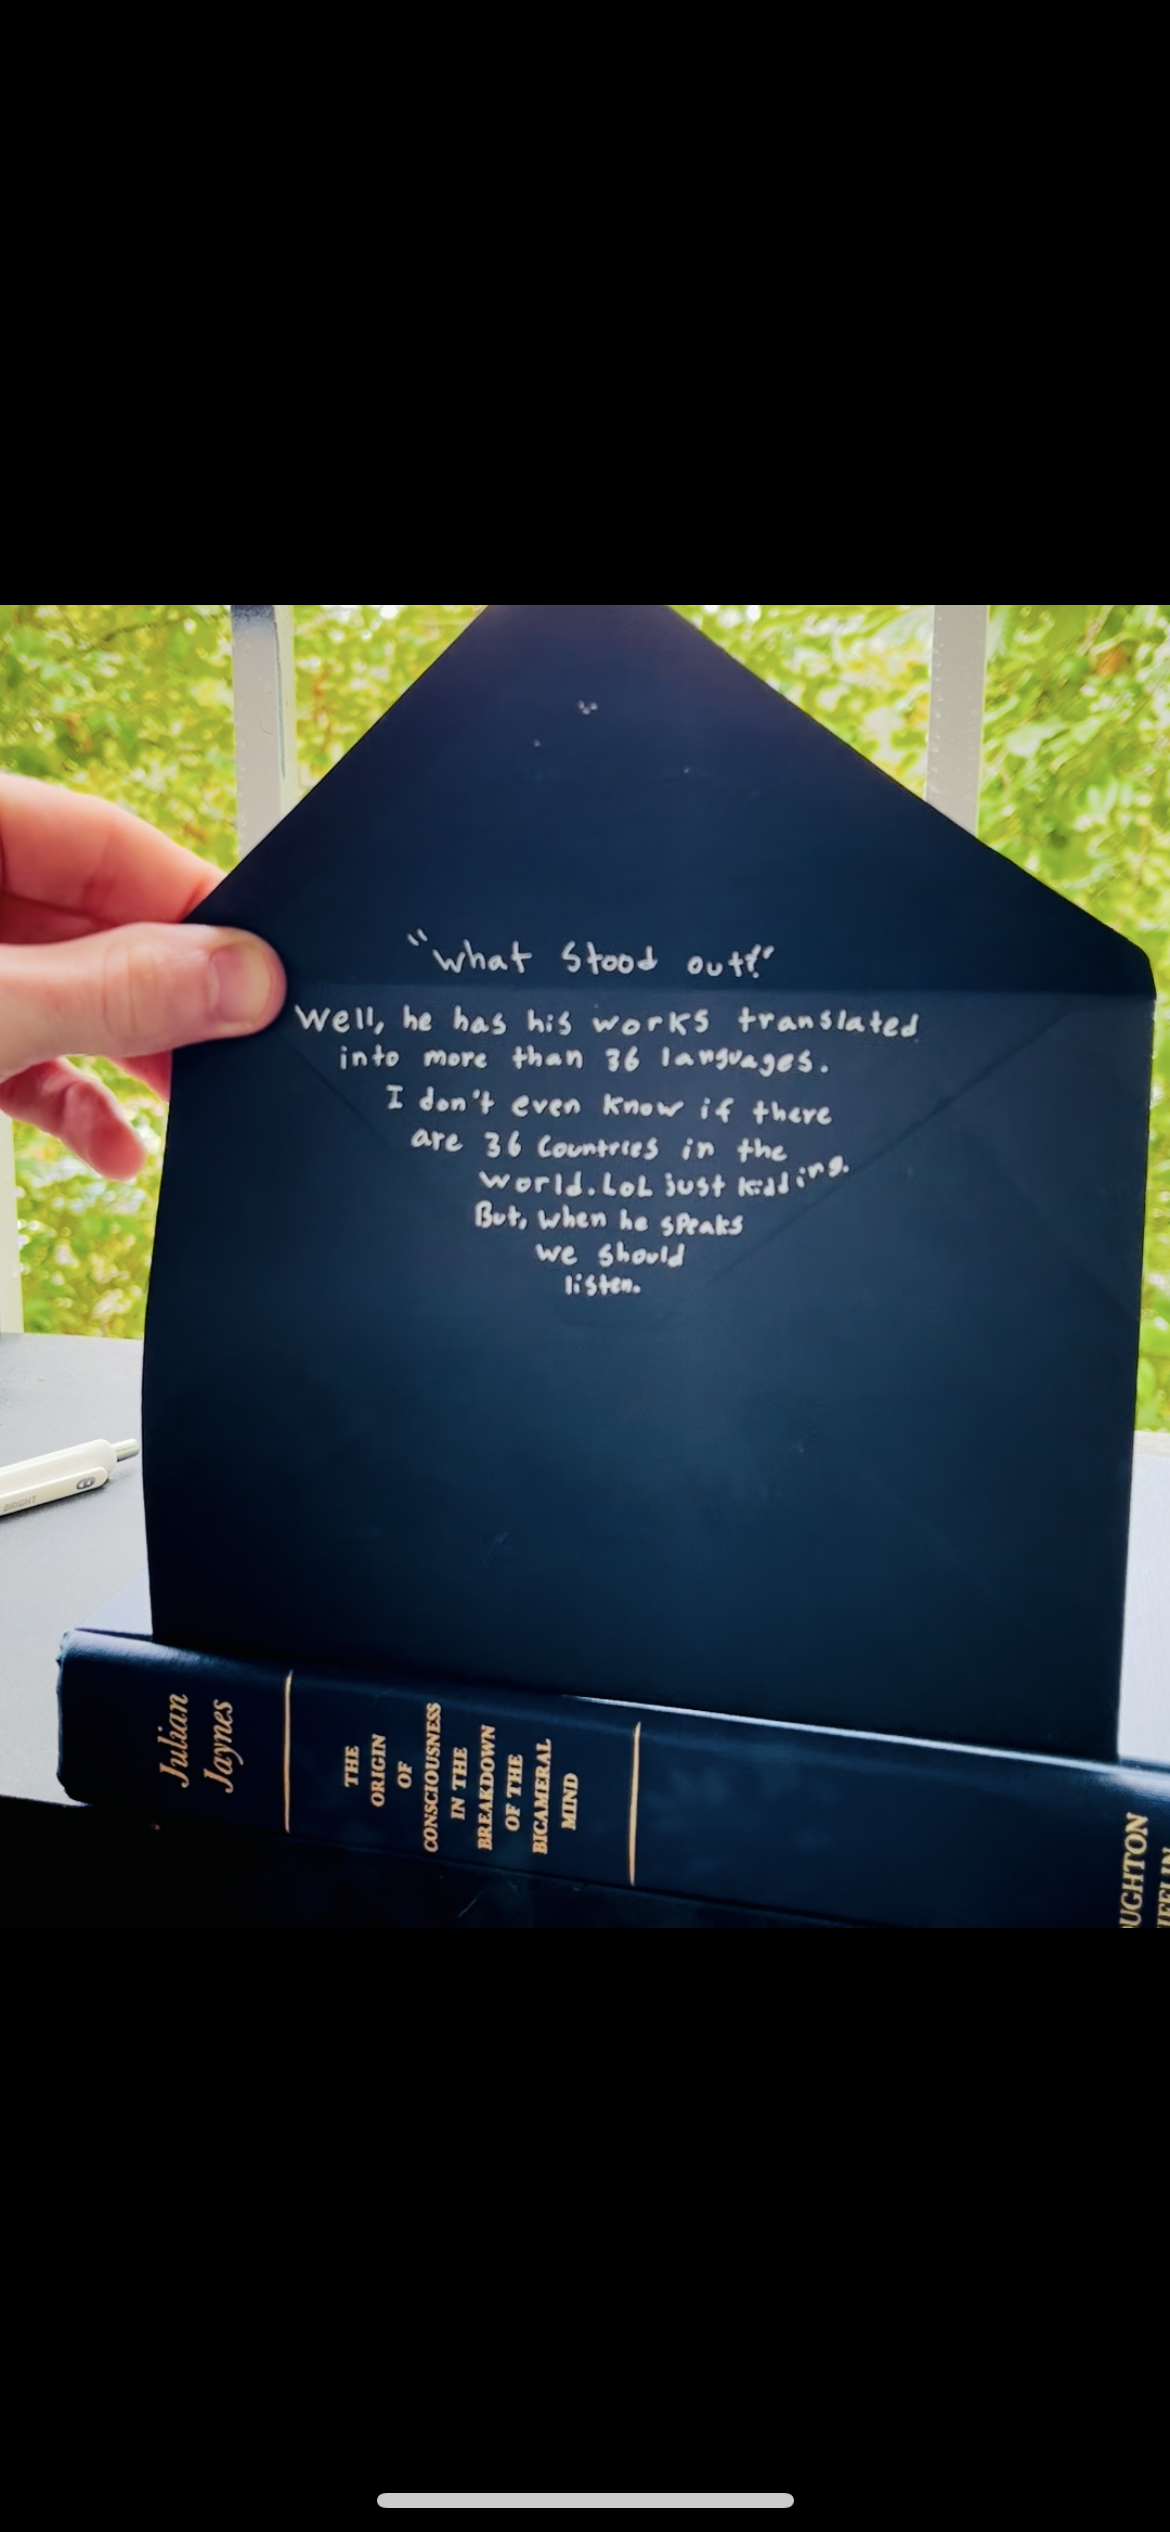 "What stood out?"
Well, he has his works translated
into more than 36 languages.
I don't even know if there
are 36 Countries in the
world. LoL just kidding.
But, when he speaks
we should
listen.
BRIGHT
Julian
Jaynes
THE
ORIGIN
OF
CONSCIOUSNESS
IN THE
BREAKDOWN
OF THE
BICAMERAL
MIND
UGHTON